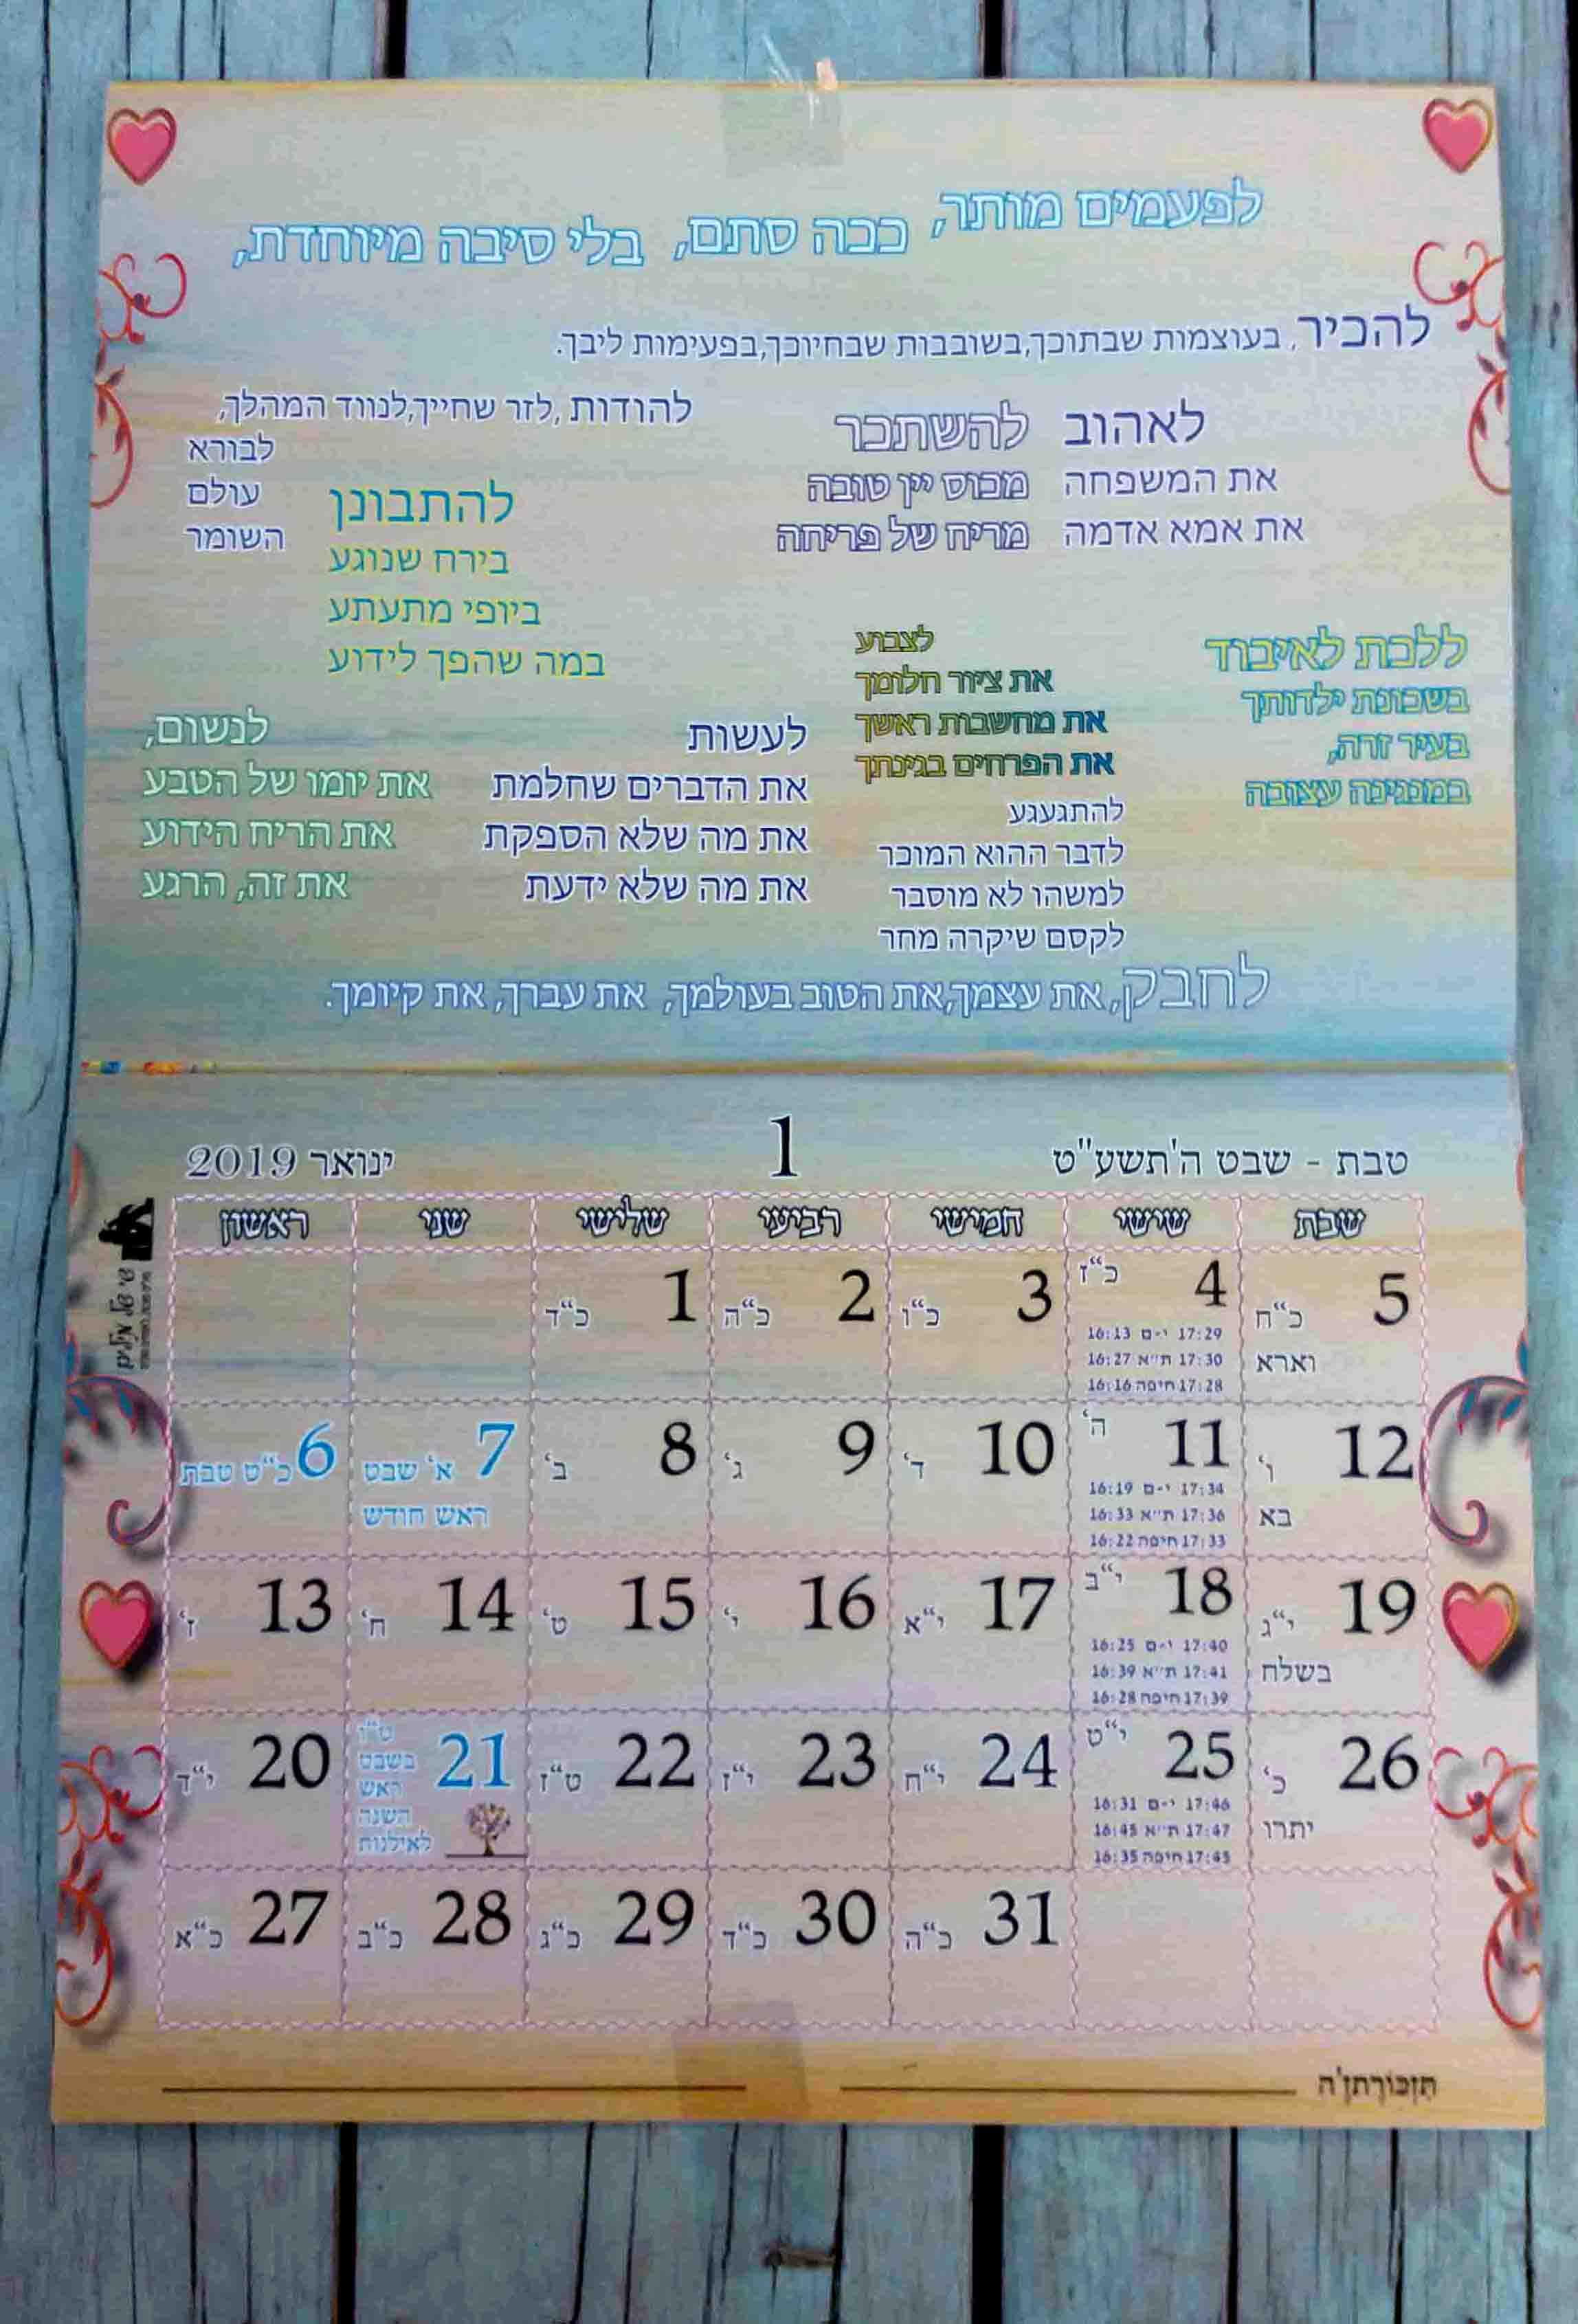 לפעמים מותר, ככה סתם, בלי סיבה מיוחדת,
להכיר, בעוצמות שבתוכך,בשובבות שבחיוכך,בפעימות ליבך.
לאהוב
את המשפחה
את אמא אדמה
להשתכר
מכוס יין טובה
מריח של פריחה
להודות ,לזר שחייך,לנווד המהלך,
לבורא
עולם
השומר
להתבונן
בירח שנוגע
ביופי מתעתע
במה שהפך לידוע
ללכת לאיבוד
בשכונת ילדותך
בעיר זרה,
במנגינה עצובה
לצבוע
את ציור חלומך
את מחשבות ראשך
את הפרחים בגינתך
להתגעגע
לדבר ההוא המוכר
למשהו לא מוסבר
לקסם שיקרה מחר
לעשות
את הדברים שחלמת
את מה שלא הספקת
את מה שלא ידעת
לנשום,
את יומו של הטבע
את הריח הידוע
את זה, הרגע
לחבק, את עצמך,את הטוב בעולמך, את עברך, את קיומך.
טבת - שבט ה'תשע"ט 1 ינואר 2019
ראשון שני שלישי רביעי חמישי שישי שבת
1 כ"ד
2 כ"ה
3 כ"ו
4 כ"ז
16:13 י-ם 17:29
16:27 ת"א 17:30
16:16 חיפה 17:28
5 כ"ח
וארא
6 כ"ט טבת
7 א' שבט
ראש חודש
8 ב'
9 ג'
10 ד'
11 ה'
16:19 י-ם 17:34
16:33 ת"א 17:36
16:22 חיפה 17:33
12 ו'
בא
13 ז'
14 ח'
15 ט'
16 י'
17 י"א
18 י"ב
16:25 י-ם 17:40
16:39 ת"א 17:41
16:28 חיפה 17:39
19 י"ג
בשלח
20 י"ד
21 ט"ו
בשבט
ראש
השנה
לאילנות
22 ט"ז
23 י"ז
24 י"ח
25 י"ט
16:31 י-ם 17:46
16:45 ת"א 17:47
16:35 חיפה 17:45
26 כ'
יתרו
27 כ"א
28 כ"ב
29 כ"ג
30 כ"ד
31 כ"ה
תזכורתן'ה